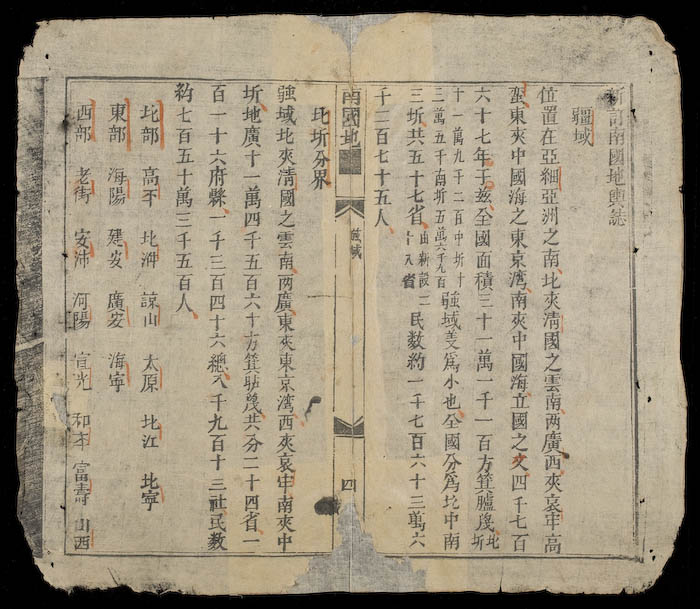 新訂南國地輿誌
疆域
位置在亞細亞洲之南北夾淸國之雲南兩廣西夾哀牢高
蛮東夾中國海之東京湾南夾中國海立國之文四千七百
六十七年于茲全國面積三十一萬一千一百方箕驢𣼽北圻
十一萬九千二百中圻十
三萬五千南圻五萬六千九百
疆域差爲小也全國分爲北中南
三圻共五十七省由新設二十八省民数約一千七百六十三萬六
千二百七十五人
南國地
疆域
四
北圻分界
疆域北夾淸國之雲南兩廣東夾東京湾西夾哀牢南夾中
圻地廣十一萬四千五百六十方箕驢𣼽共分二十四省一
百一十六府縣一千三百四十六總八千九百十三社民数
約七百五十萬三千五百人
北部 高平 北㳥 諒山 太原 北江 北寧
東部 海陽 建安 廣安 海寧
西部 老街 安沛 河陽 宣光 和平 富壽 山西